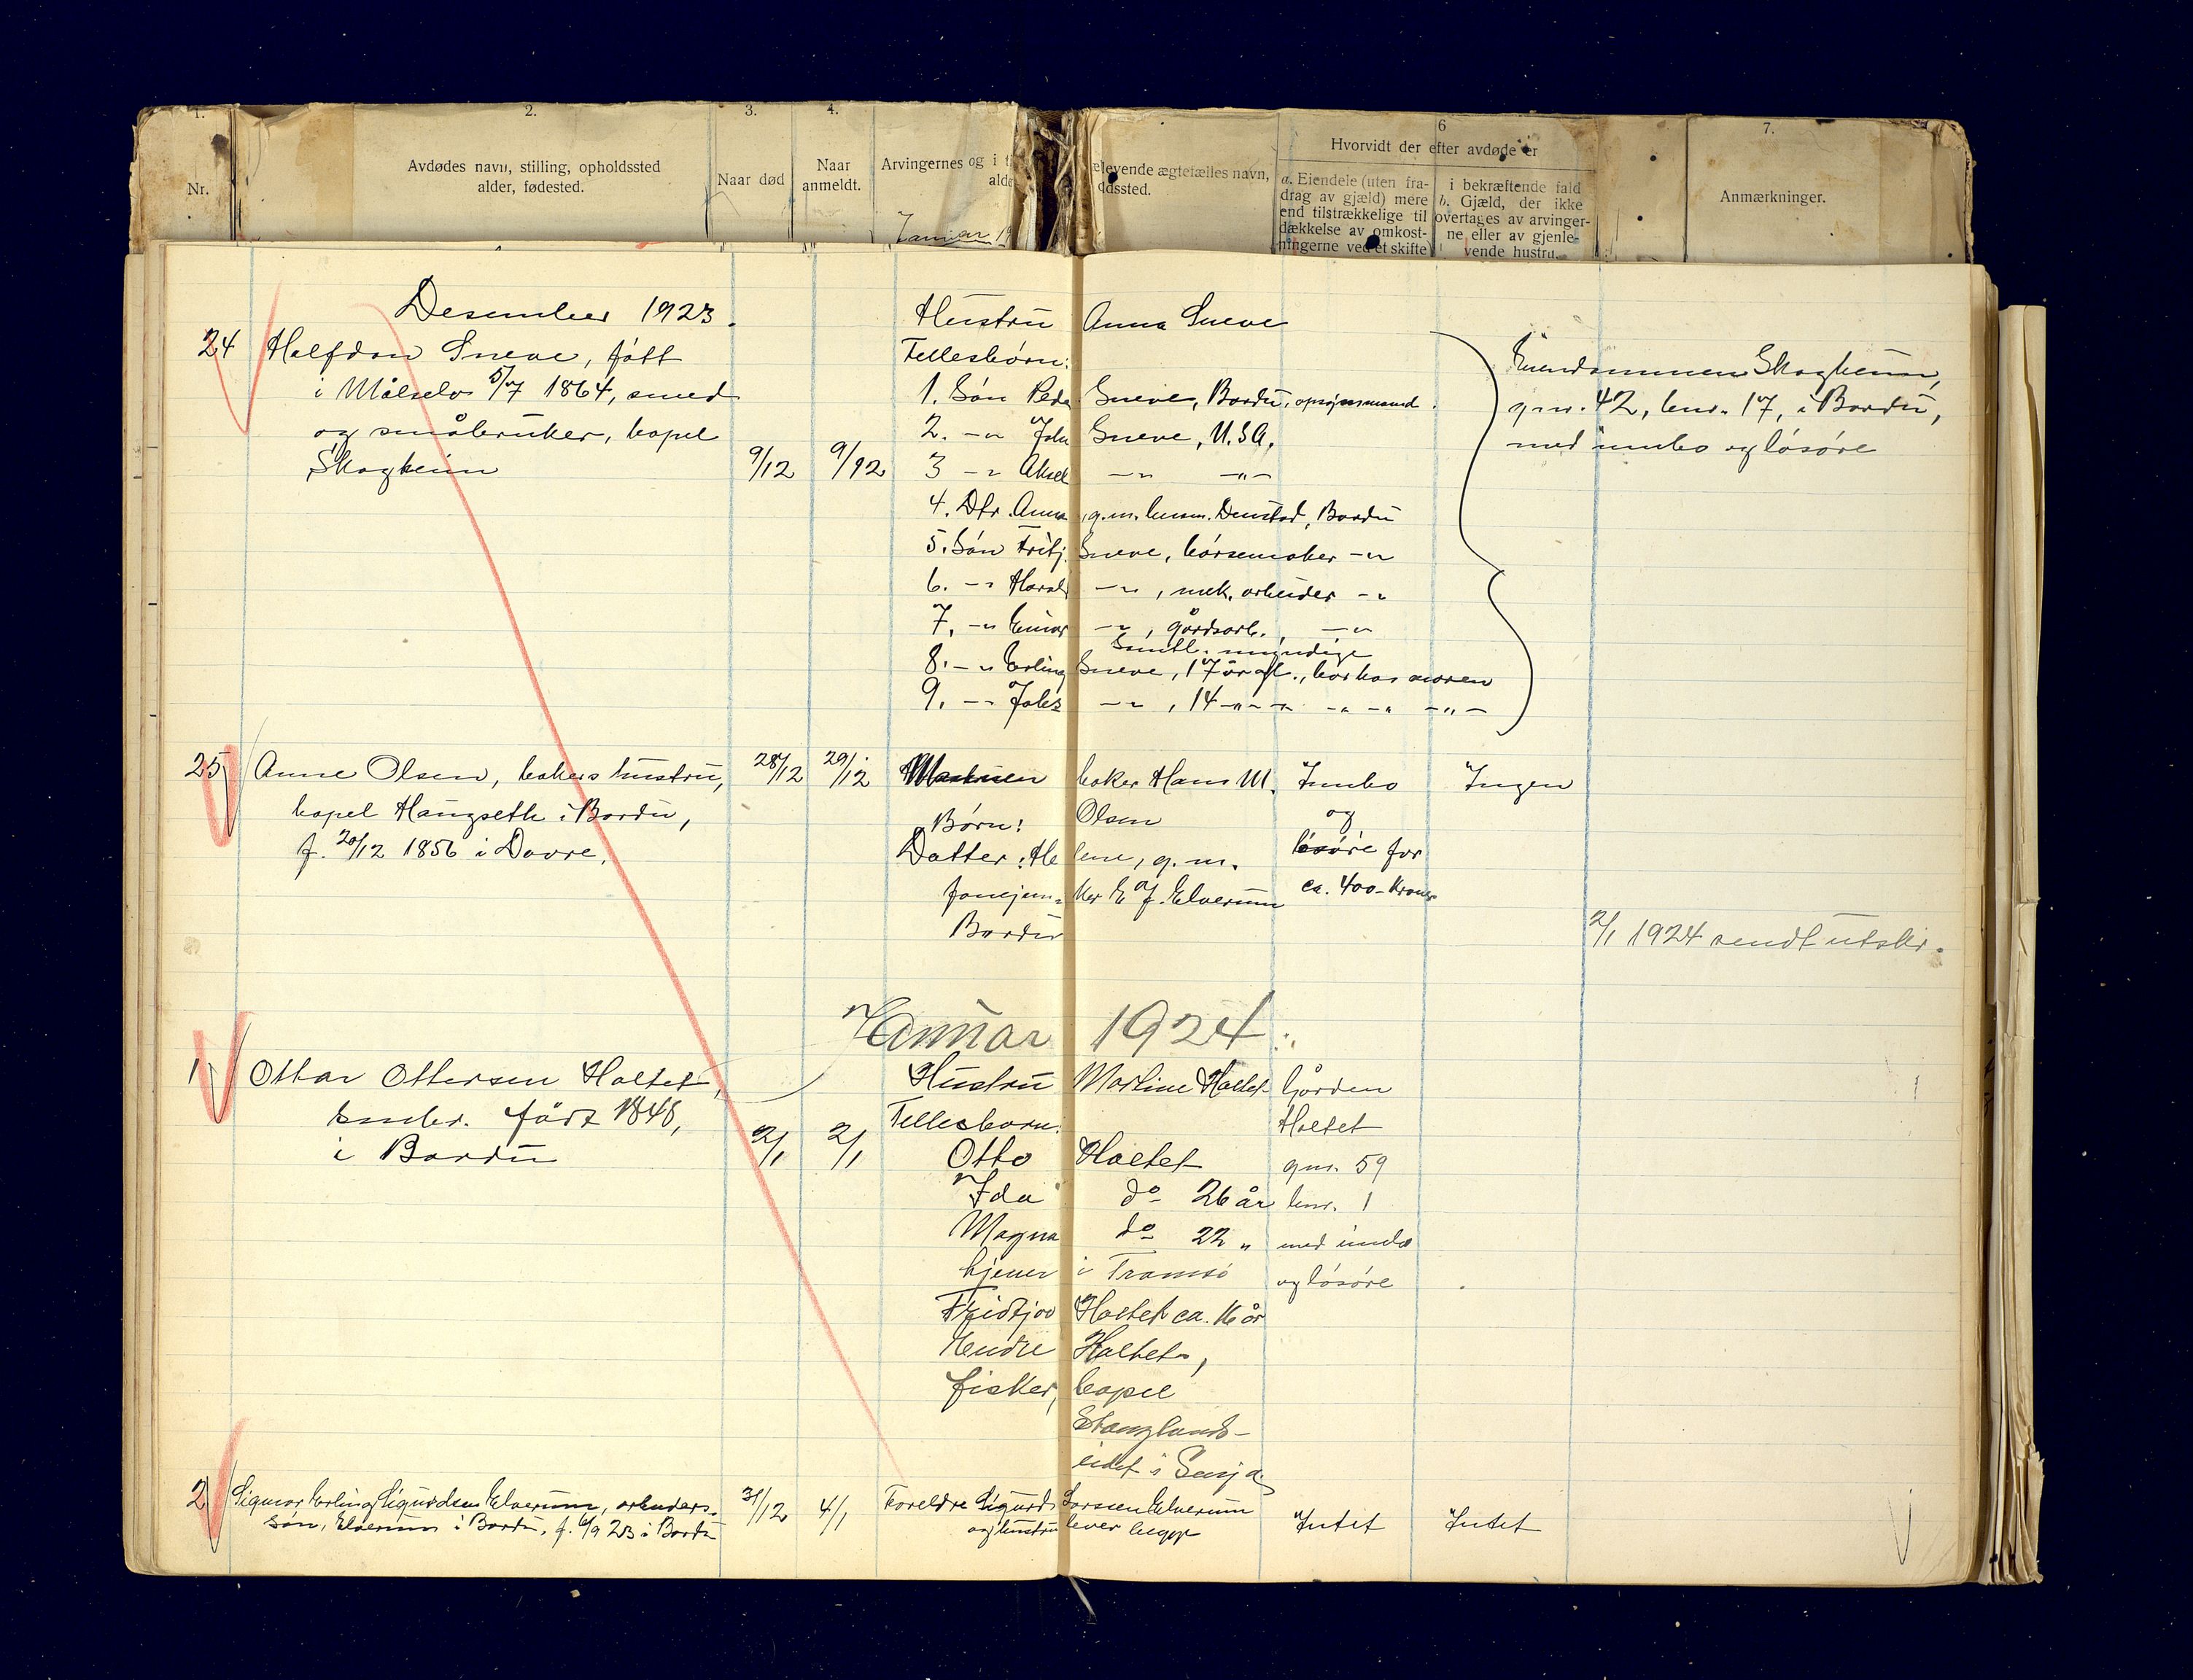 1.
2.
3.
4.
6
7.
Nr.
Avdødes navn, stilling, opholdssted
alder, fødested.
Naar død
Naar
anmeldt.
Arvingernes og i
elevende ægtefælles navn,
dssted.
Hvorvidt der efter avdøde er
a. Eiendele (uten fra-
drag av gjæld) mere
end tilstrækkelige til
dækkelse av omkost-
ningerne ved et skifte
i bekræftende fald
b. Gjæld, der ikke
overtages av arvinger-
ne eller av gjenle-
vende hustru.
Anmærkninger.
Januar 19
Desember 1923.
24 Halfdan Sneve, født
i Målselv 5/7 1864, smed
og småbruker, bopel
Skogheim 9/12 9/12
Hustru Anna Sneve
Fellesbørn:
1. Søn Peda Sneve, Bardu, opsynsmand.
2. -"- John Sneve, U.S.A.
3 -"- Aksel -"- -"-
4. Dtr. Anna, g.m. Denstad, Bardu
5. Søn Fritj. Sneve, børsemaker -"-
6. -"- Harald -"-, mek. arbeider -"-
7. -"- Einar -"-, gårdsarb., -"-
Samtl. myndige
8. -"- Erling Sneve, 17 år gl., bor hos moren
9. -"- Johs -"-, 14 -"- -"- -"- -"- -"-
Eiendommen Skogheim,
gnr. 42, bnr. 17, i Bardu,
med innbo og løsøre
25 Anne Olsen, bakers hustru, 28/12 29/12
bopel Haugseth i Bardu,
f. 20/12 1856 i Dovre,
baker Hans M.
Olsen
Børn:
Datter: Helene, g.m.
E. J. Elverum
Bardu
Innbo
og
løsøre for
ca. 400 - kroner
Ingen
2/1 1924 sendt utskr.
Januar 1924.
1 Ottar Ottersen Holtet,
født 1848,
i Bardu 2/1 2/1
Hustru Martine Holtet
Fellesbarn:
Otto Holtet
Ida do 26 år
Magna do 22 "
tjener i Tromsø
Fridtjov Holtet ca. 16 år
Endre Holtet,
fisker, bopel
Stonglands-
eidet i Senja
Gården
Holtet
gnr. 59
bnr. 1
med innbo
og løsøre
2 Sigmar Erling Sigurdsen Elverum, arbeiders- 31/12 4/1
søn, Elverum i Bardu, f. 4/9 23 i Bardu
Foreldre Sigurd Larssen Elverum
og hustru lever begge
Intet
Intet